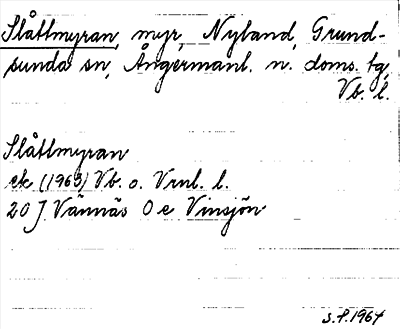 Slåttmyran, myr, Nyland, Grund-
sunda sn, Ångermanl. n. doms. tg,
Vb. l.
Slåttmyran
ek (1963) Vb. o. Vrnl. l.
20 J Vännäs O e Vinsjön
s. f. 1964